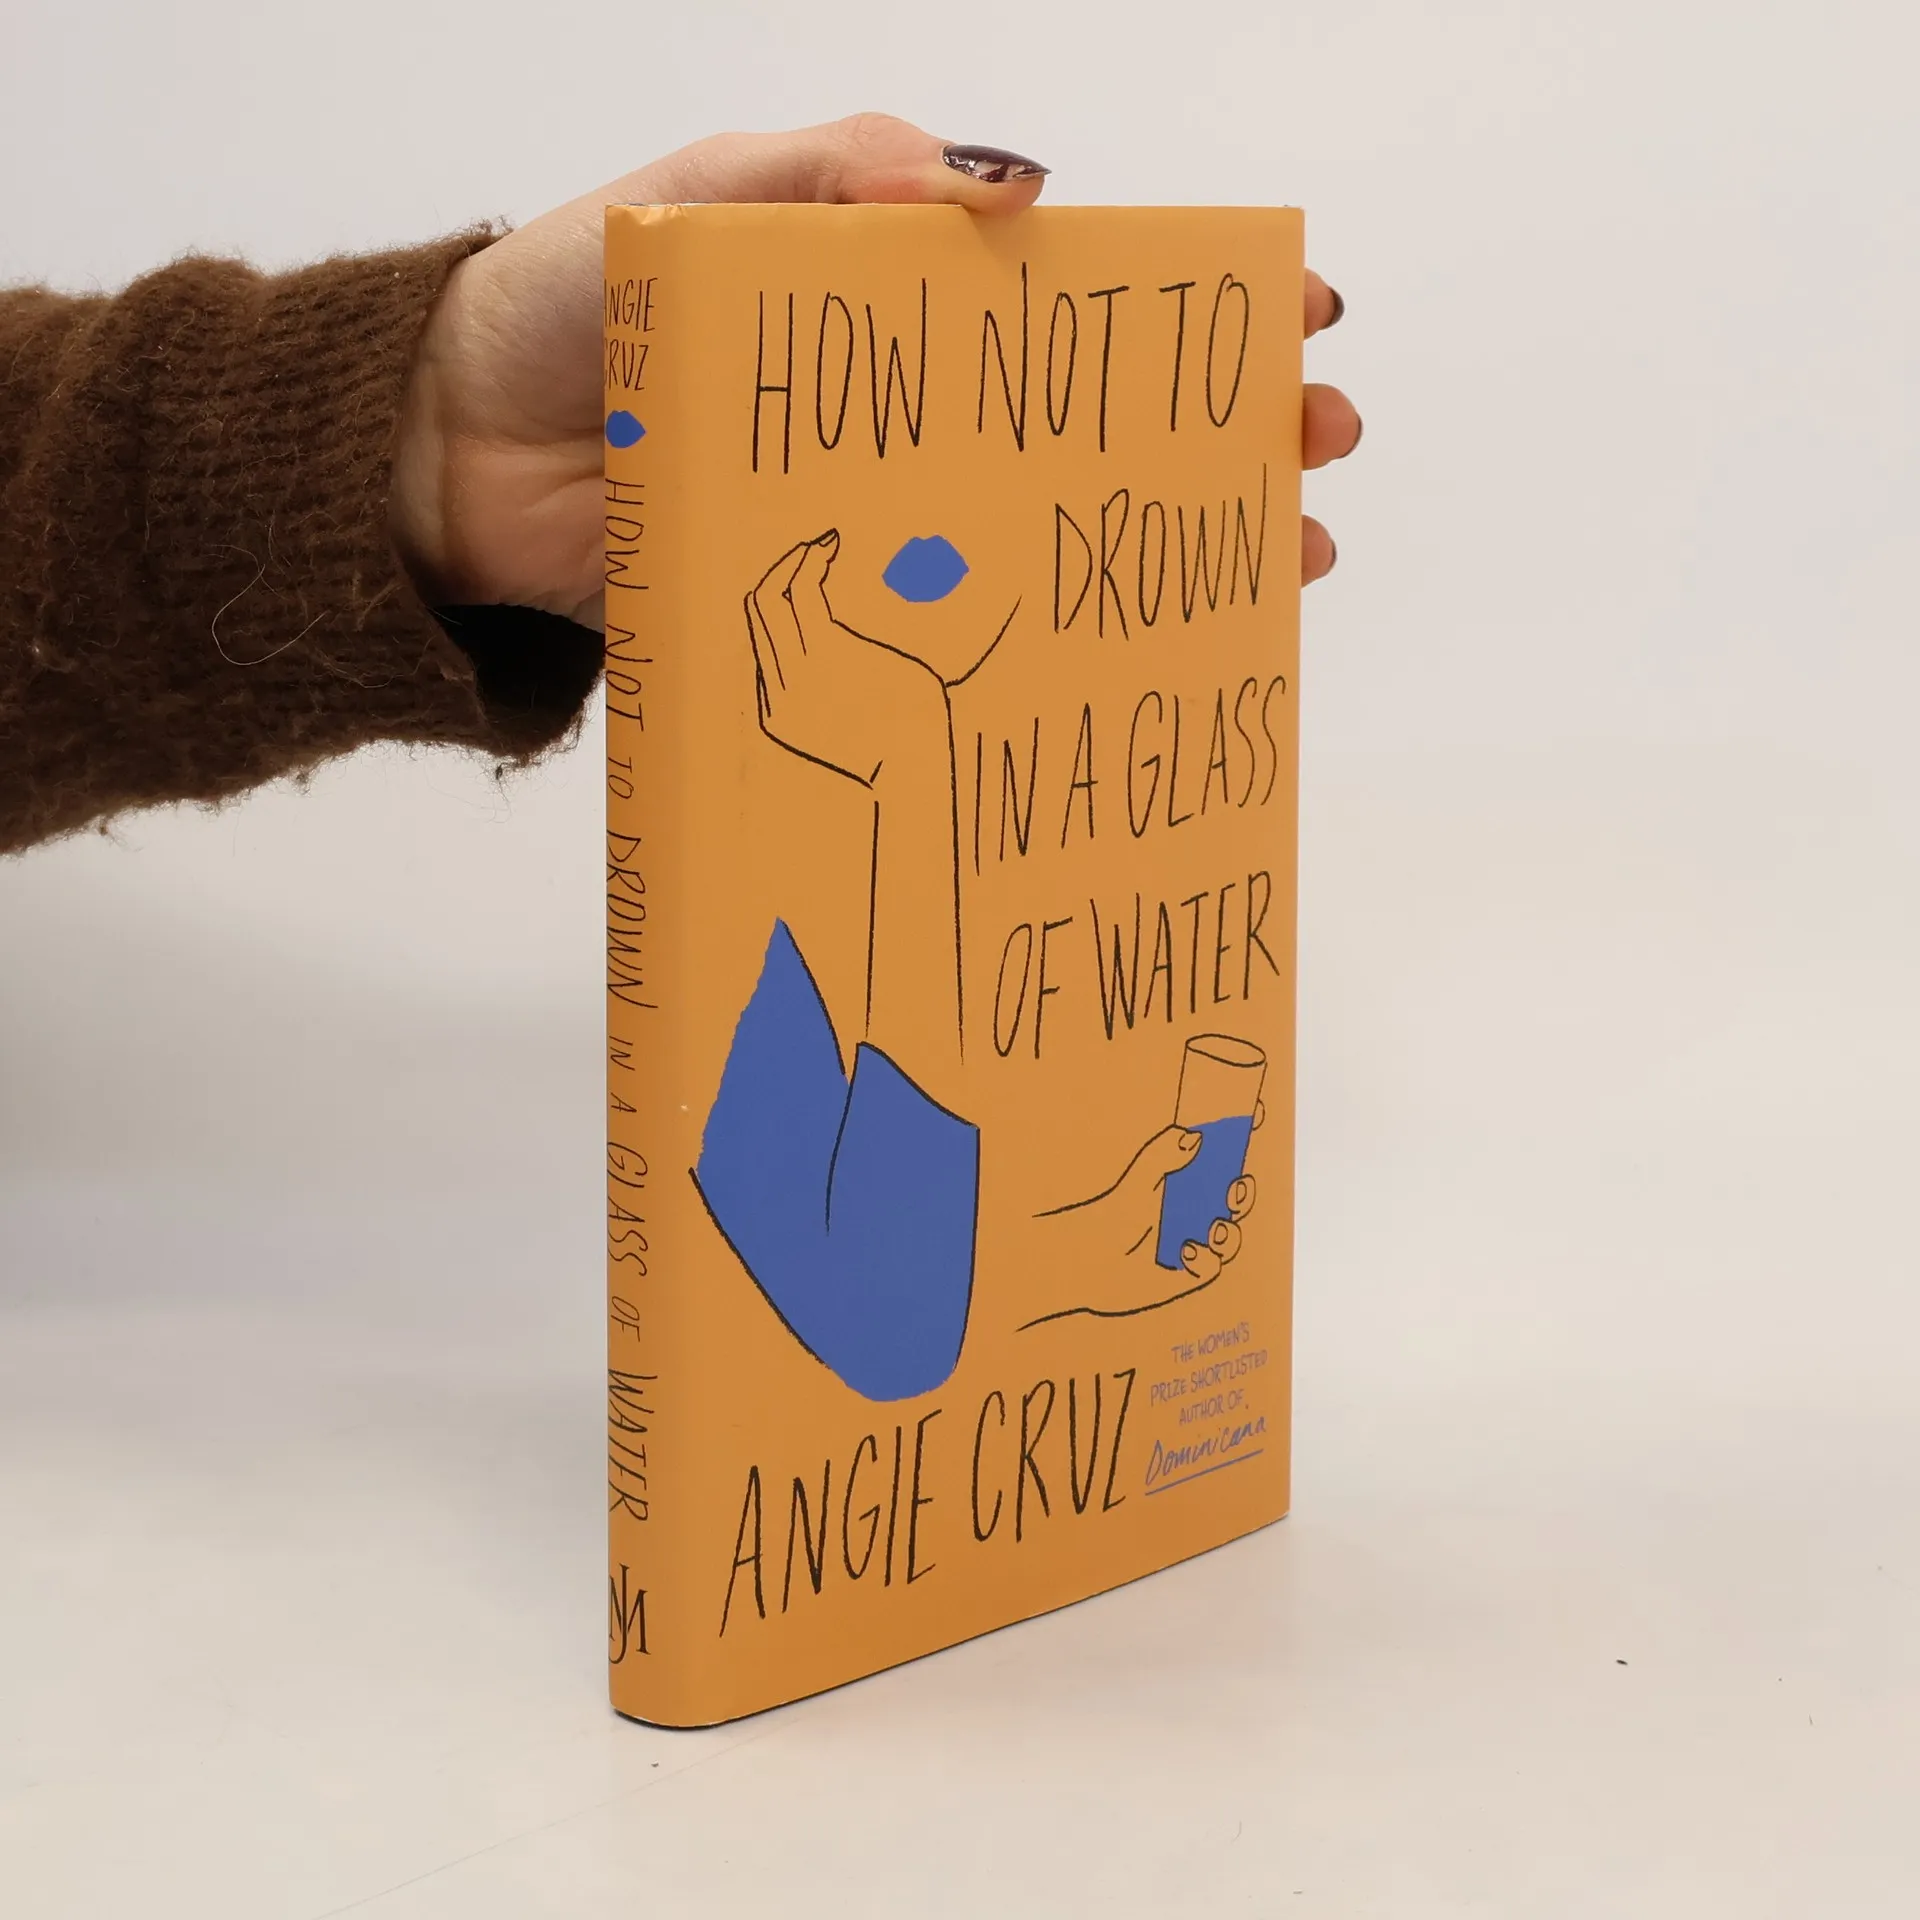 ANGIE
CRUZ
HOW NOT TO DROWN IN A GLASS OF WATER
JM
HOW NOT TO
DROWN
IN A GLASS
OF WATER
THE WOMEN'S
PRIZE SHORTLISTED
AUTHOR OF
Dominicana
ANGIE CRUZ